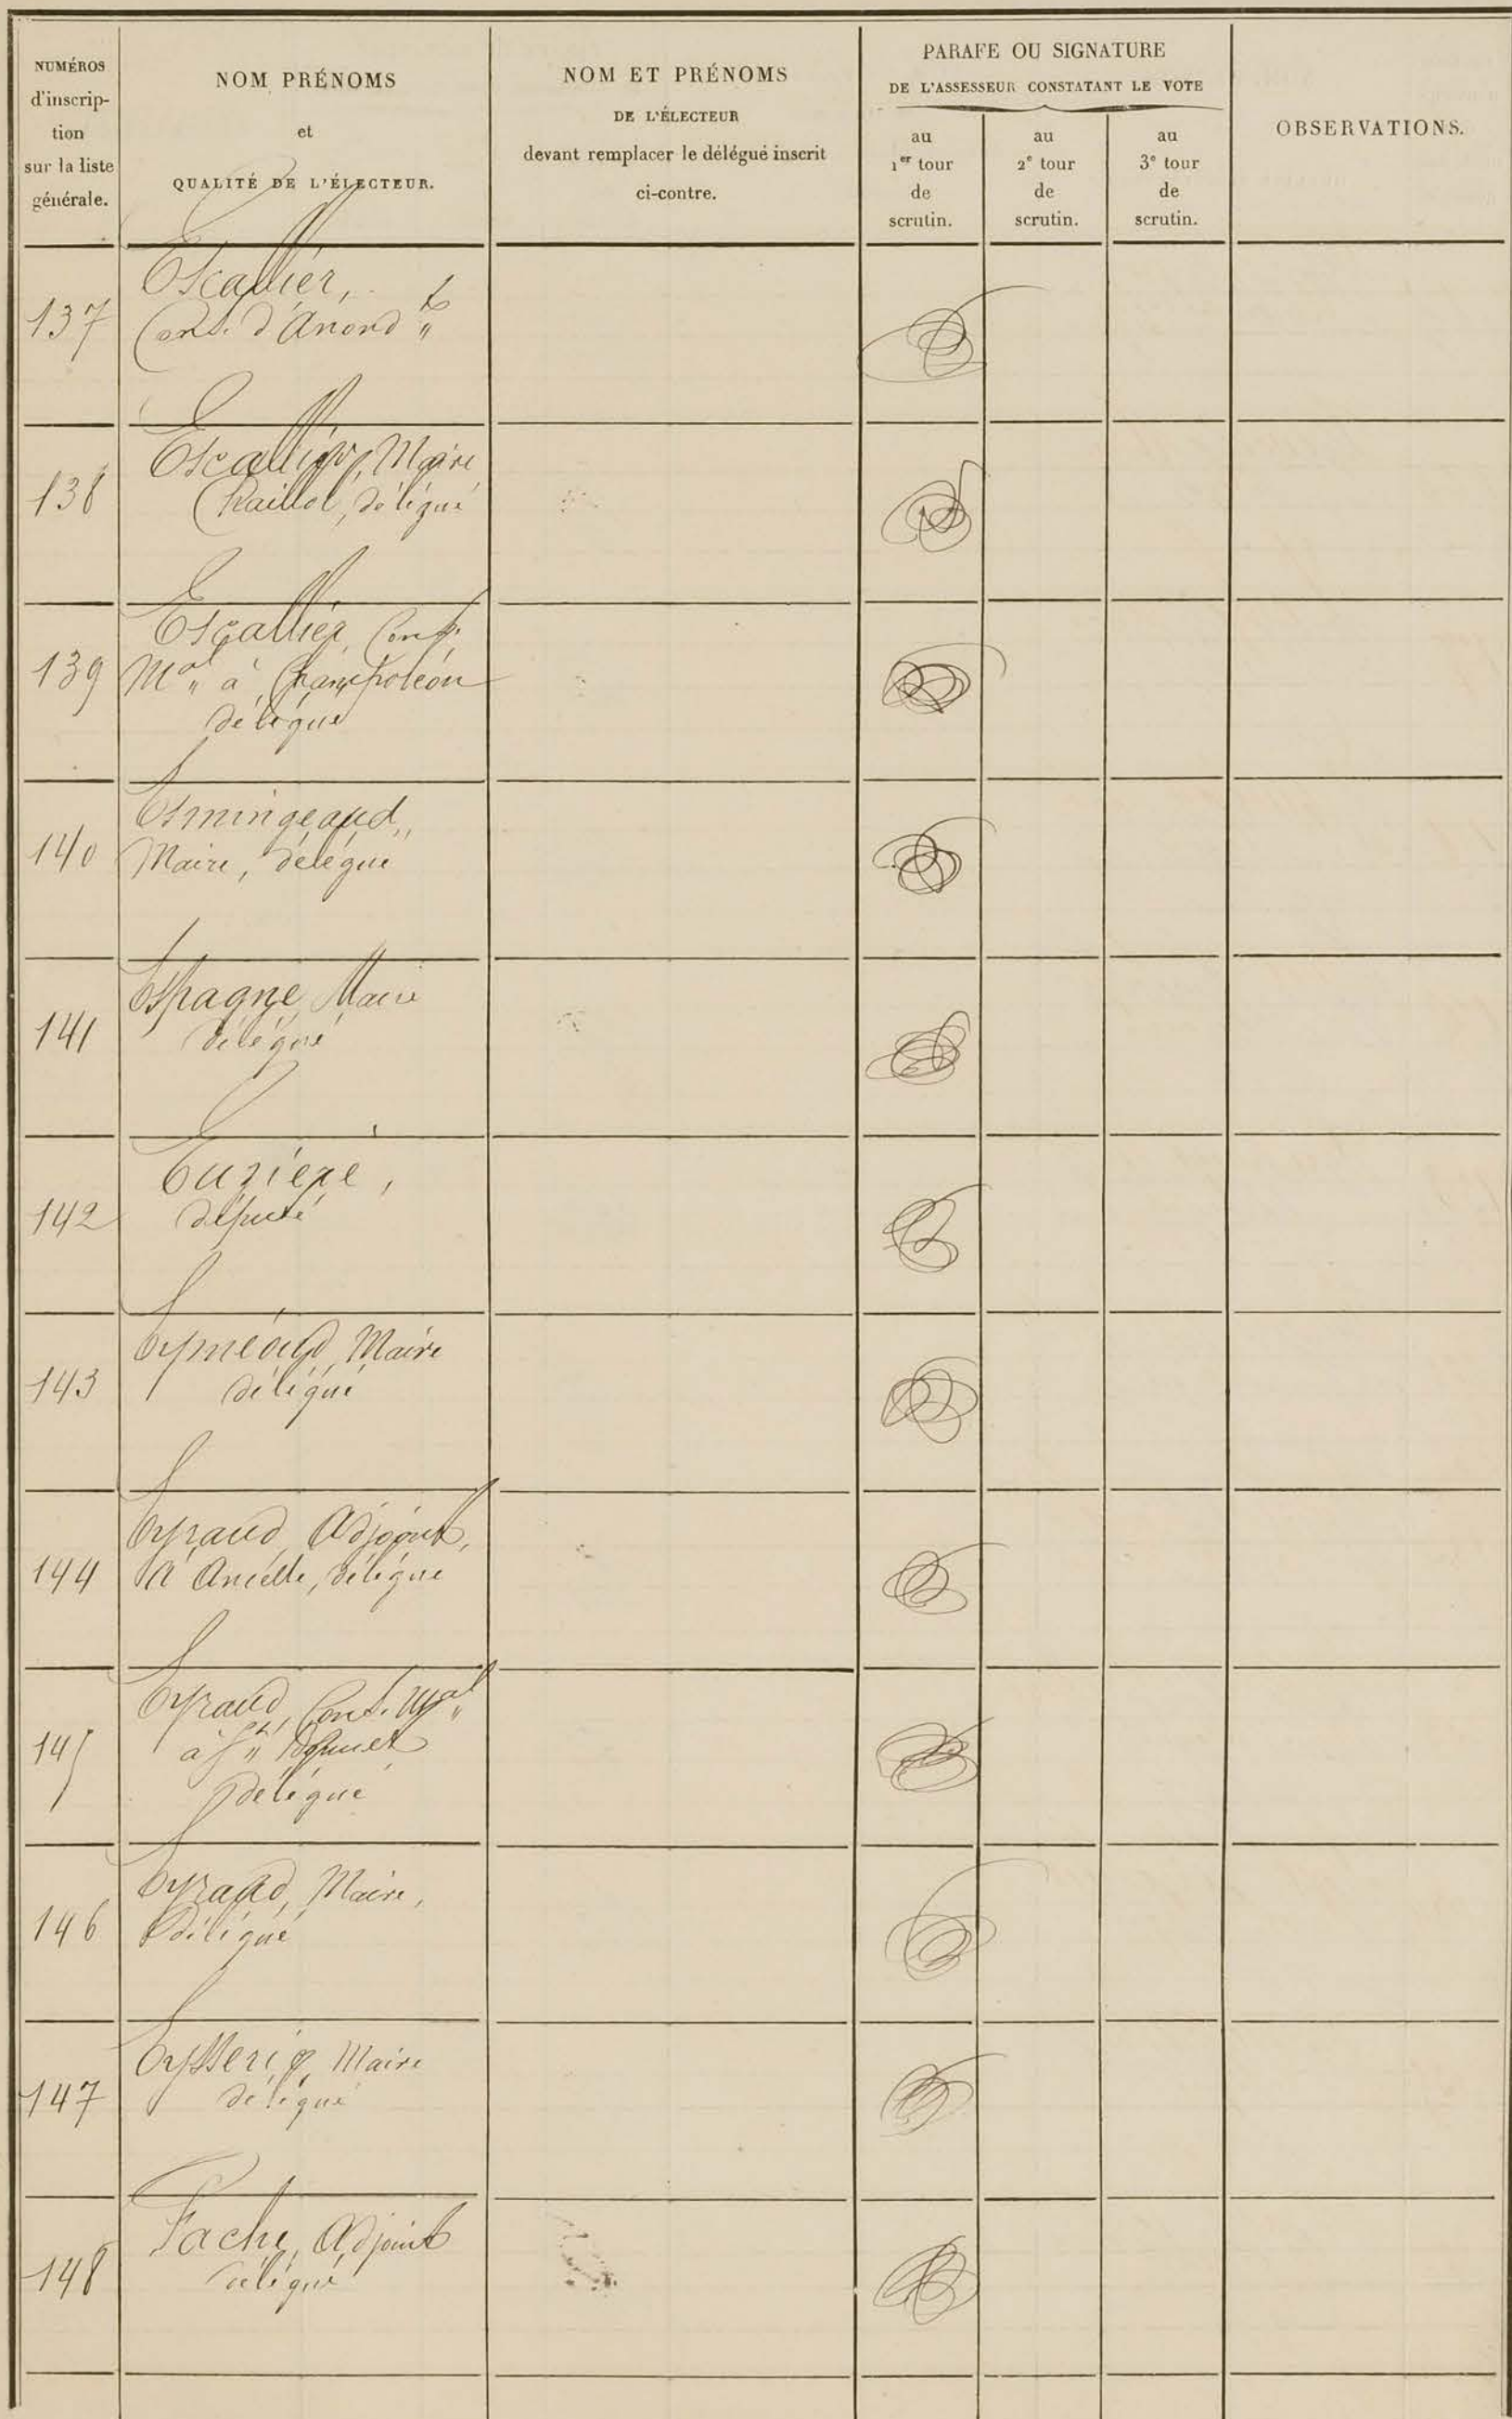 NUMÉROS
d'inscrip-
tion
sur la liste
générale.
NOM PRÉNOMS
et
QUALITÉ DE L'ÉLECTEUR.
NOM ET PRÉNOMS
DE L'ÉLECTEUR
devant remplacer le délégué inscrit
ci-contre.
PARAFE OU SIGNATURE
DE L'ASSESSEUR CONSTATANT LE VOTE
au
1er tour
de
scrutin.
au
2e tour
de
scrutin.
au
3e tour
de
scrutin.
OBSERVATIONS.
137
Escallier,
Cons. d'Arrond t
138
Escallier, Maire
Chaillol, délégué
139
Escallier, Cons.
Mal à Champoléon
délégué
140
Esmingeaud,
Maire, délégué
141
Espagne, Maire
délégué
142
Euzière,
député
143
Eyméoud, Maire
délégué
144
Eyraud, Adjoint,
à Ancelle, délégué
145
Eyraud, Cons. Mpal
à St Bonnet
délégué
146
Eyraud, Maire,
délégué
147
Eysseric, Maire
délégué
148
Fache, Adjoint
délégué